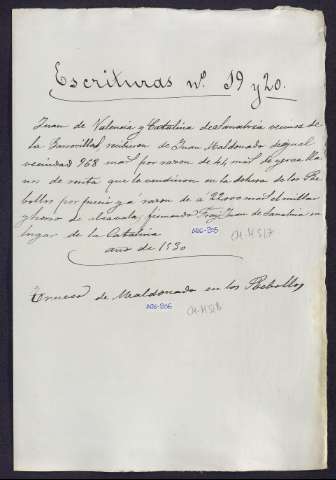 Escrituras nº. 19 y 20.
Juan de Valencia y Catalina de Sanabria vecinos de
la Parrilla vendieron de Juan Maldonado de
vecindad 968 mil por razon de 44 mil de yerva lla
nos de renta que la vendieron en la dehesa de los Re
bollos por precio y a razon de á 22000 mil el millar
y horro de alcavala, firmando Fray Juan de Sanabria en
lugar de la Catalina
año de 1530
A06-205 CM-H 5/7
de Maldonado en los Rebollos
A06-206 CM-H 5/8